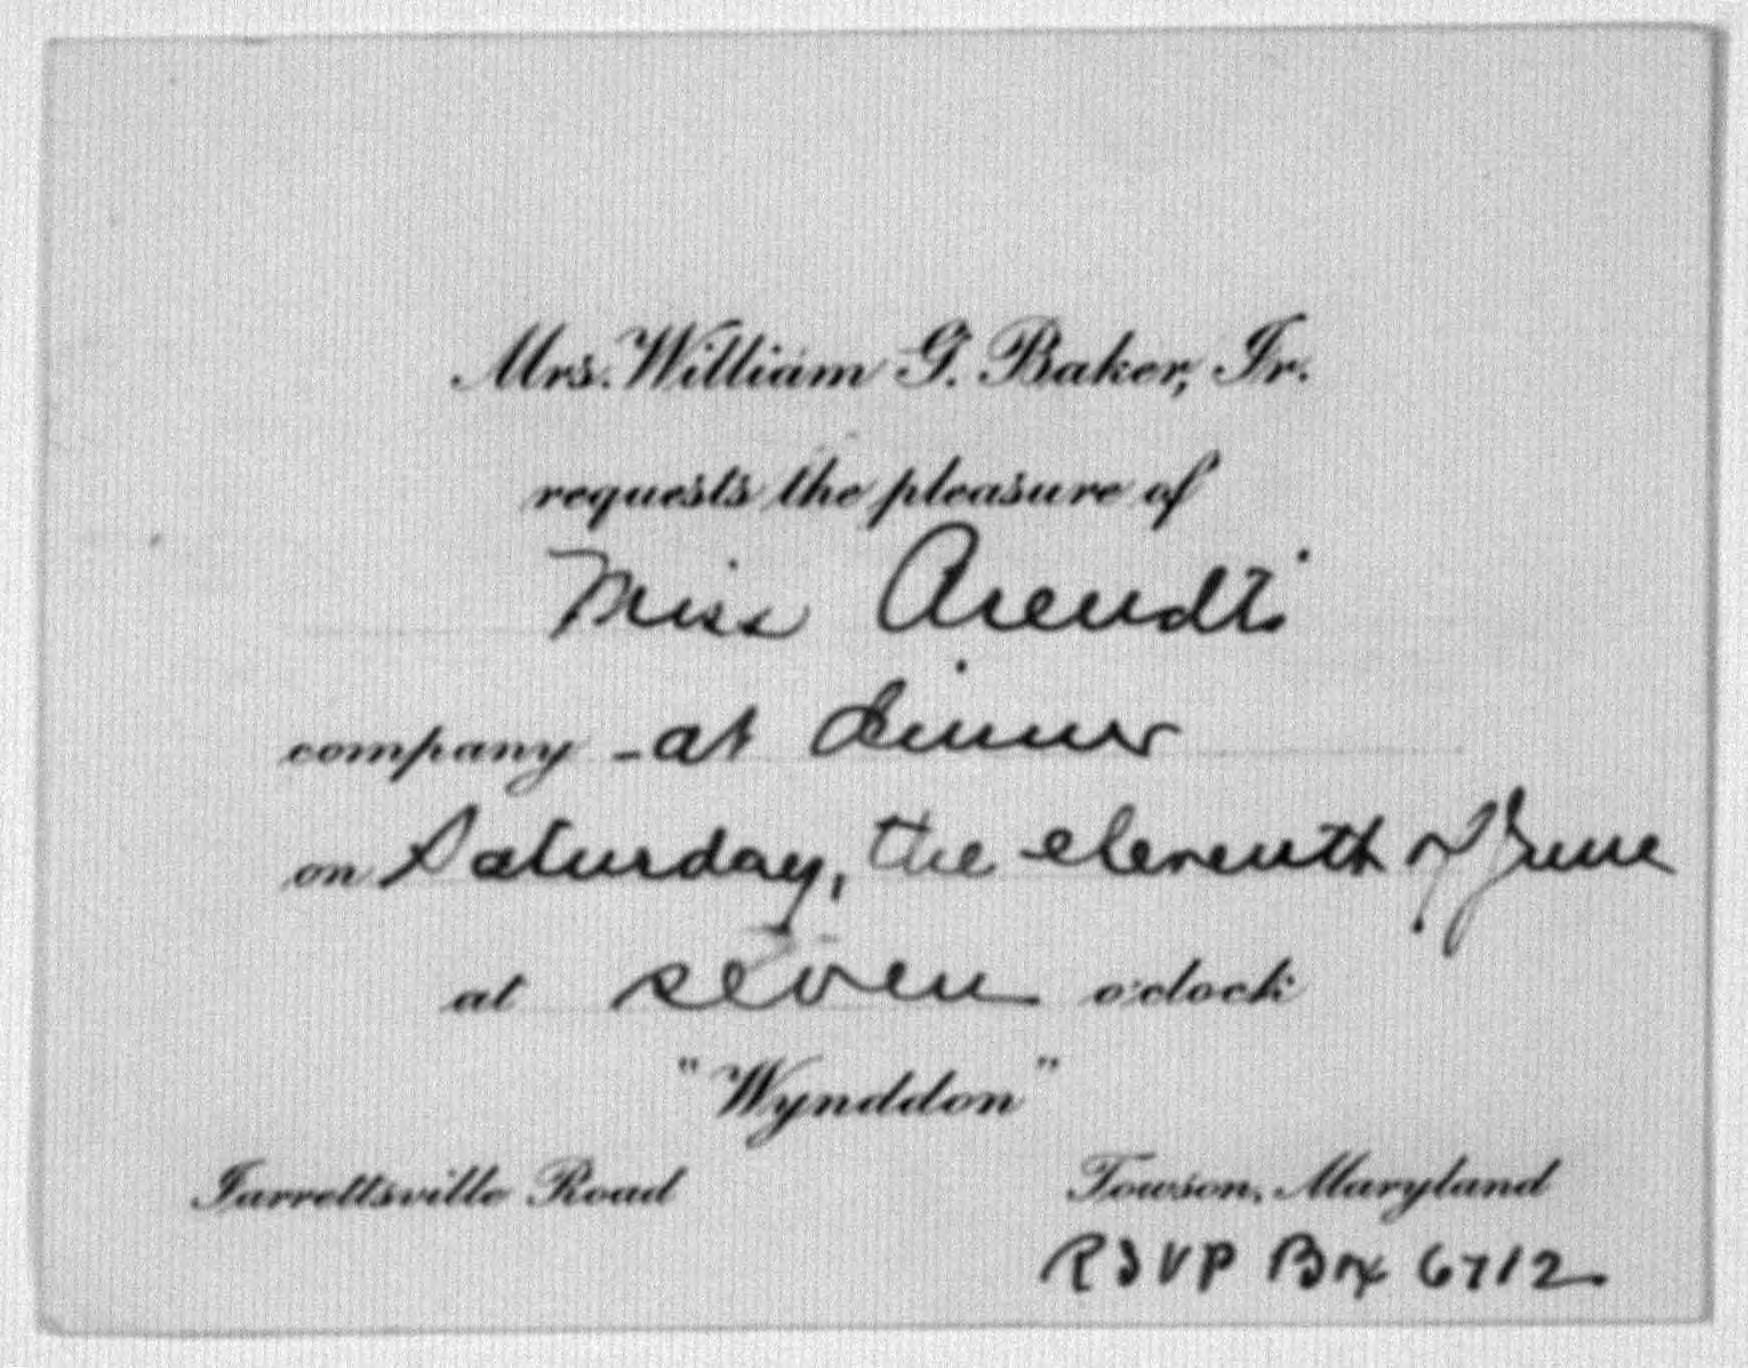 Mrs. William G. Baker, Jr.
requests the pleasure of
Miss Arendt's
company at dinner
on Saturday, the eleventh of June
at seven o'clock
"Wynddon"
Jarrettsville Road
Towson, Maryland
RSVP Box 6712